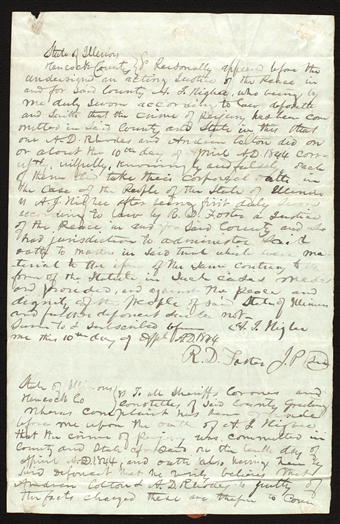 State of Illinois
Hancock County } SS Personally appeared before the
undersigned an acting Justice of the Peace in
and for said County H. J. Higbee, who being by
me duly sworn according to law deposeth
and saith that the crime of perjury has been com
mitted in said County and State in this that
one A. D. Rhodes and Andrew Colton did on
or about the 10th day of April A.D. 1844
wilfully, and falsely each
of them said take their Corporal oath in
the case of the People of the State of Illinois
vs H. J. Higbee after being first duly sworn
according to law by R. D. Foster a Justice
of the Peace, in and for said County and who
had jurisdiction to administer said
oath to matters in said trial which were ma
terial to the issue of the same contrary to the
form of the Statute in such cases made
and provided and against the peace and
dignity of the People of said State of Illinois
and further deponent saith not
Sworn to & subscribed before H. J. Higbee
me this 10th day of April A.D. 1844
R. D. Foster J P
State of Illinois
Hancock Co } SS To all Sheriffs Coroners and
Constables of said County Greeting
Whereas complaint has been made
before me upon the oath of H. J. Higbee,
that the crime of perjury was committed in
County and State on the tenth day of
April A.D. 1844 and oath also having been by
said deponent that he verily believes that
Andrew Colton & A. D. Rhodes is guilty of
the facts charged these are therefore to Com